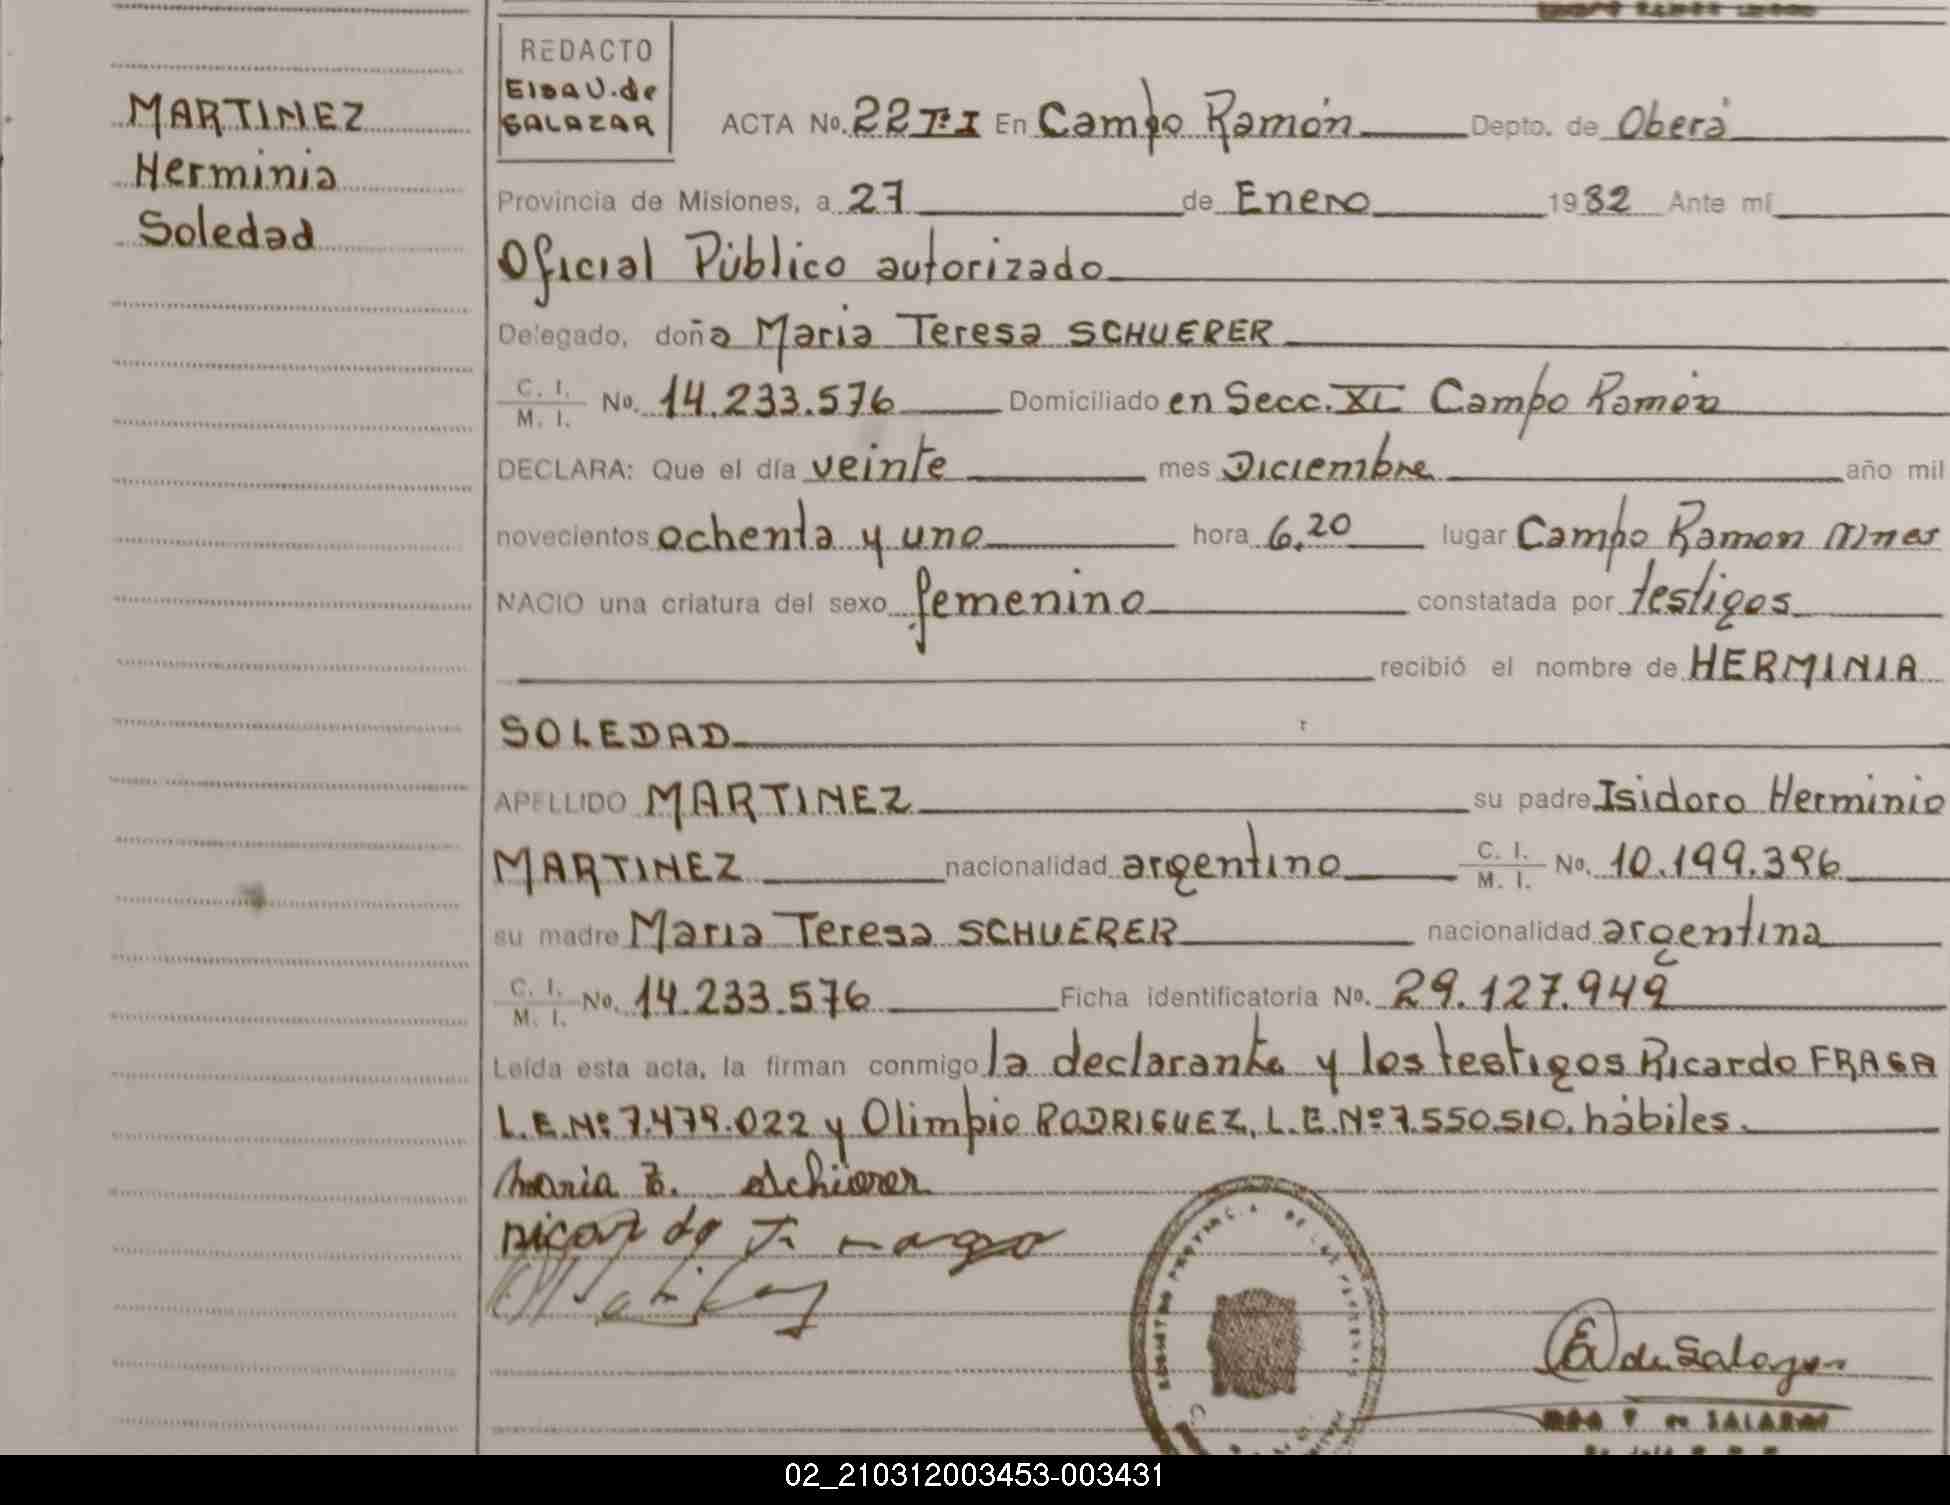 MARTINEZ
Herminia
Soledad
REDACTO
Elba V. de
SALAZAR
ACTA No. 22 Tº I En Campo Ramón Depto. de Oberá
Provincia de Misiones, a 27 de Enero 1982 Ante mí
Oficial Público autorizado
Delegado, doña Maria Teresa SCHUERER
C. I.
M. I. No. 14.233.576 Domiciliado en Secc. XI Campo Ramón
DECLARA: Que el día veinte mes Diciembre año mil
novecientos ochenta y uno hora 6,20 lugar Campo Ramon Mnes
NACIO una criatura del sexo femenino constatada por testigos
recibió el nombre de HERMINIA
SOLEDAD
APELLIDO MARTINEZ su padre Isidoro Herminio
MARTINEZ nacionalidad argentino C. I.
M. I. No. 10.199.396
su madre Maria Teresa SCHUERER nacionalidad argentina
C. I.
M. I. No. 14.233.576 Ficha identificatoria No. 29.127.949
Leída esta acta, la firman conmigo la declarante y los testigos Ricardo FRAGA
L.E.Nº 7.479.022 y Olimpio RODRIGUEZ, L.E.Nº 7.550.510, hábiles.
Maria T. Schuerer
de Salazar
DE SALAZAR
02_210312003453-003431